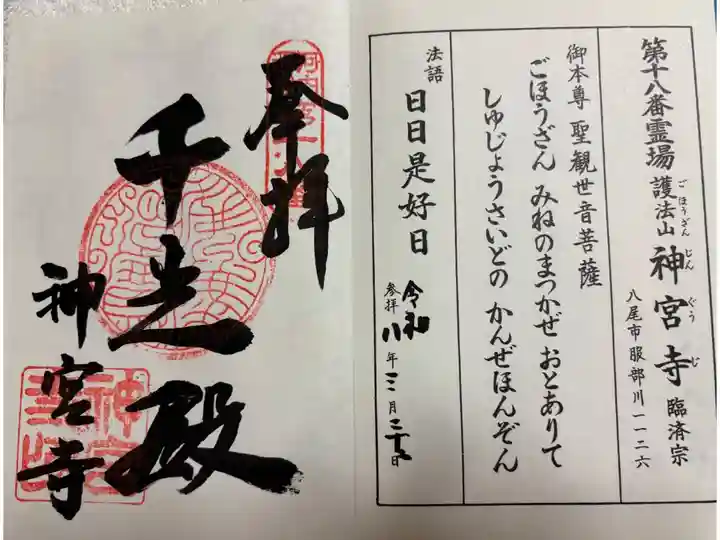 第十八番霊場 護法山 神宮寺 臨済宗
ごほうざん じんぐうじ
八尾市服部川一一二六
御本尊 聖観世音菩薩
ごほうざん みねのまつかぜ おとありて
しゅじょうさいどの かんぜほんぞん
法語 日日是好日
参拝 令和八年三月二十日
奉拝
千光殿
神宮寺